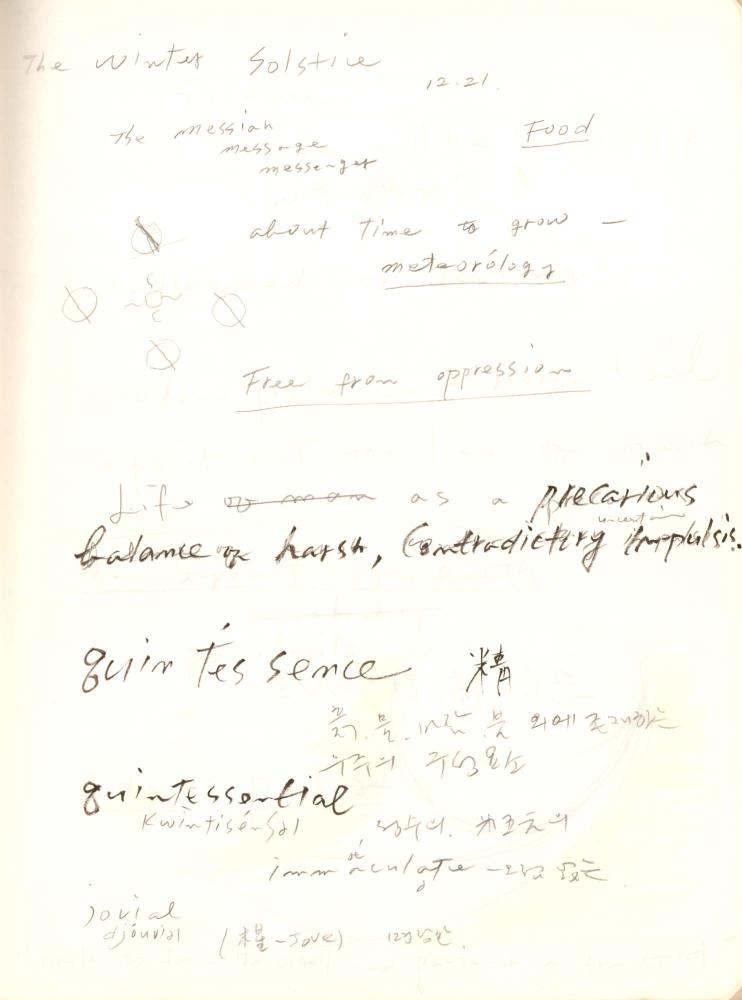 The Winter Solstice
12.21.
The messiah
message
messenger
Food
about time to grow —
meteorólogy
Free from oppression
Life of man as a precarious
uncertain
balance of harsh, Contradictiry Imppulsis.
quin tés sence 精
흙, 물, 바람, 불 외에 존재하는
우주의 구성 요소
quintessential
Kwintisénʃəl 정수의.
immaculate - 오점 없는
jovial
djóuvial (木星-Jove)